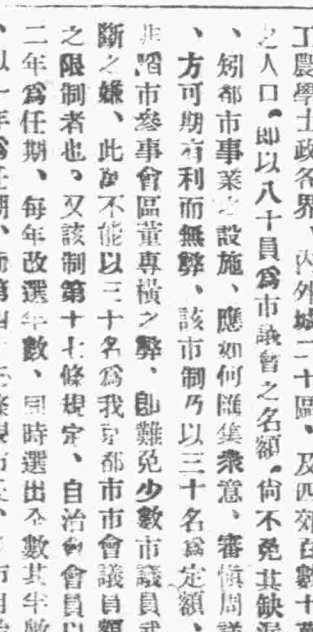 工農學士政各界、內外城二十區、及四郊百數十萬
之人口。卽以八十員爲市議會之名額。尙不免其缺漏
、矧都市事業之設施、應如何匯集衆意、審愼周詳
、方可期有利而無弊、該市制乃以三十名爲定額、
非蹈市參事會區董專橫之弊、卽難免少數市議員武
斷之嫌、此斷不能以三十名爲我京都市市會議員額
之限制者也、又該制第十七條規定、自治會會員以
二年爲任期、每年改選半數、同時選出全數其半數
、以一年爲任期、而第四十